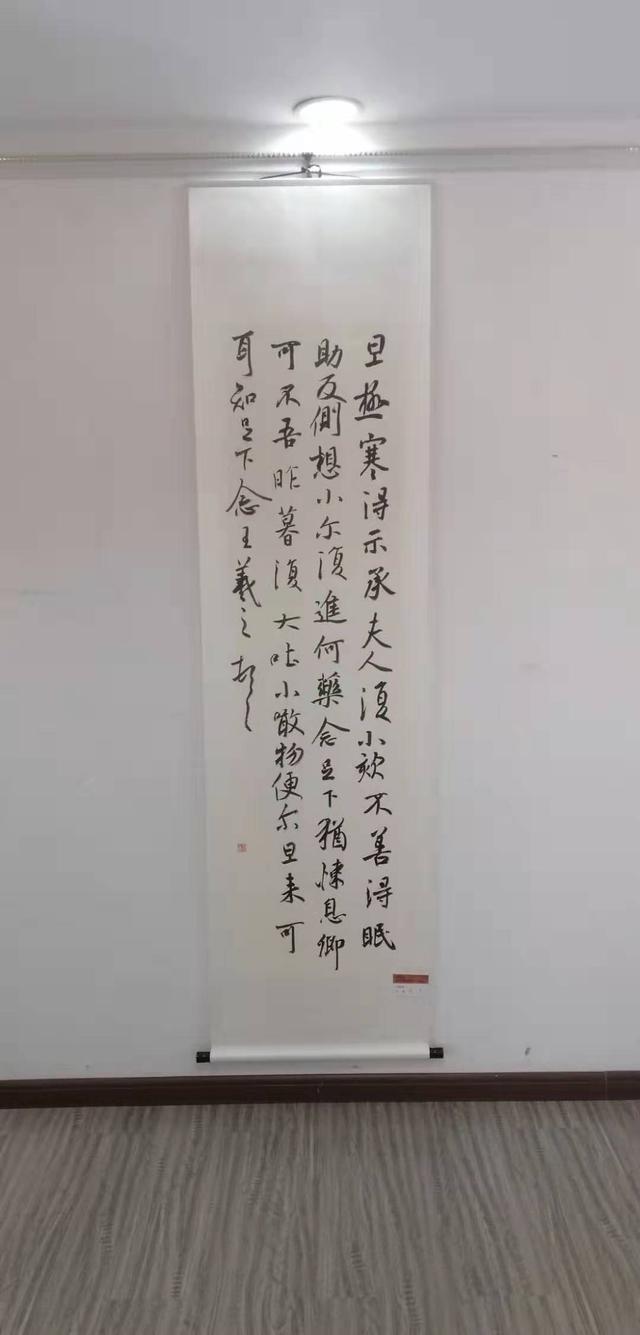 旦極寒得示承夫人復小欬不善得眠
助反側想小尔復進何藥念足下猶悚息卿
可不吾昨暮復大吐小噉物便尔旦来可
耳知足下念王羲之頓首